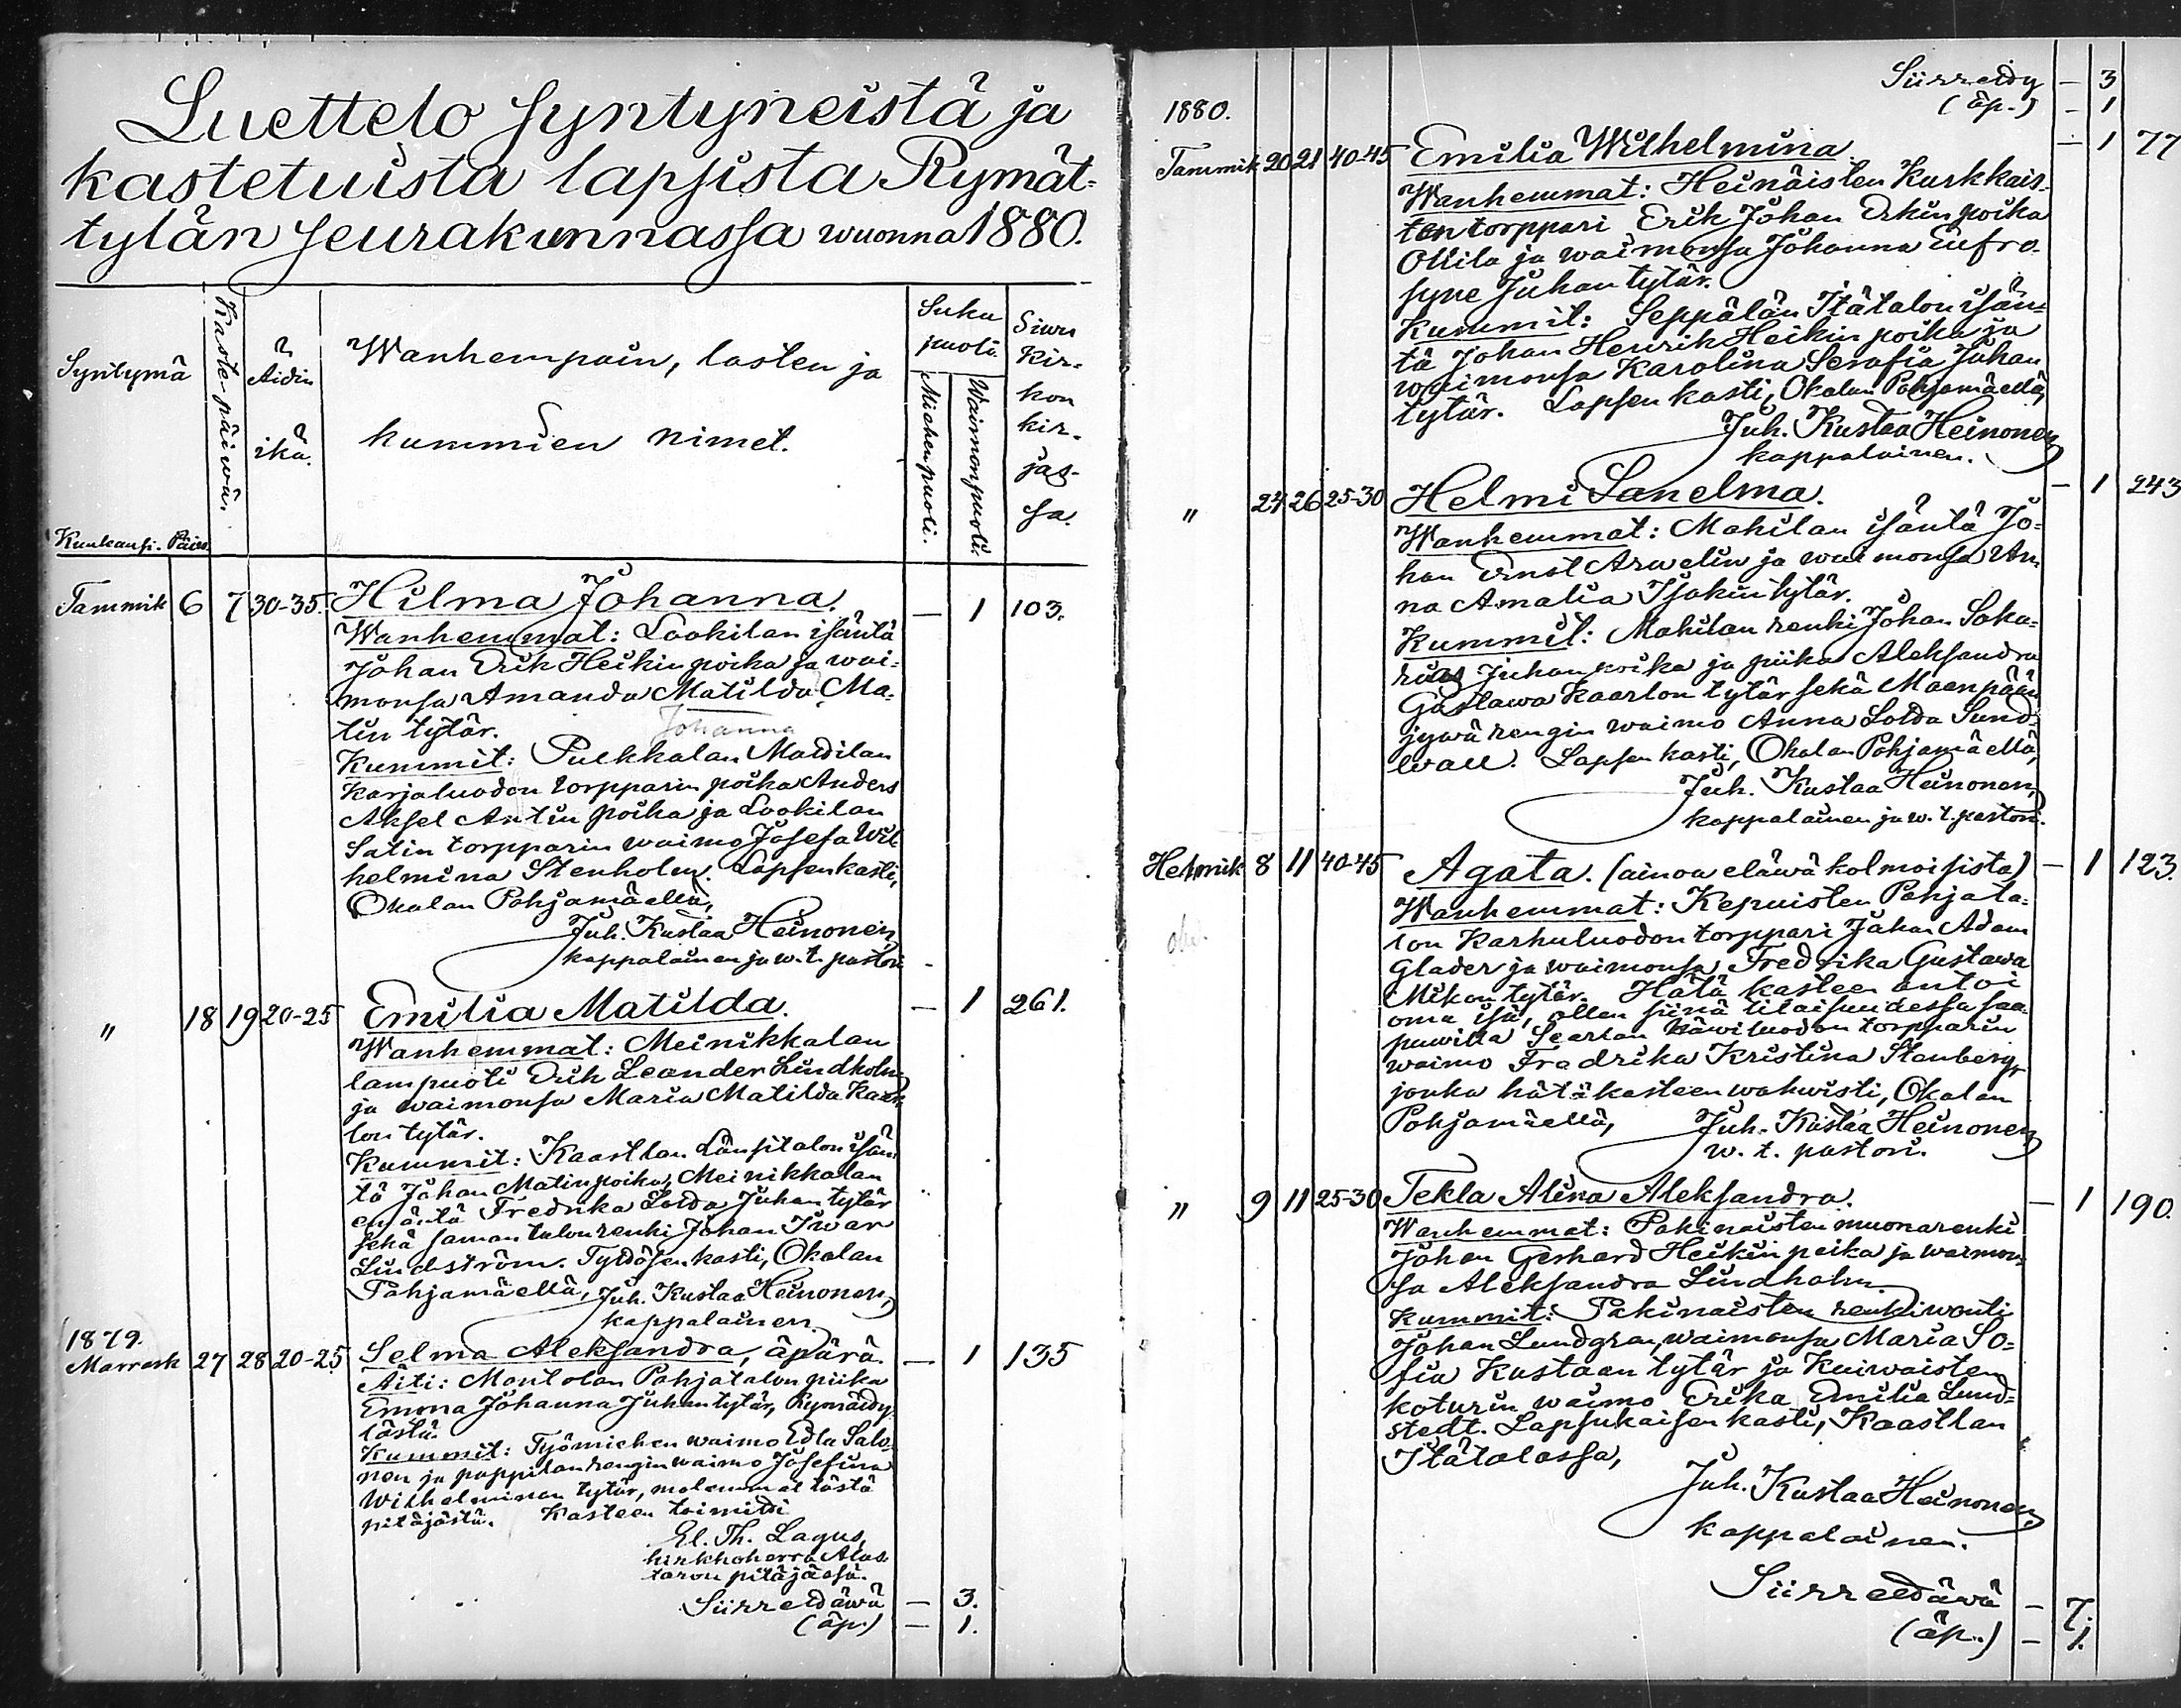 Luettelo syntyneistä ja
kastetuista lapsista Rymät-
tylän seurakunnassa wuonna 1880.
Syntymä
Kuukausi. Päiw.
Kaste-päiwä.
Äidin
ikä.
Wanhempain, lasten ja
kummien nimet.
Suku
puoli
Miehenpuoli.
Waimonpuoli.
Siwu
Kir-
kon
kir-
jas-
sa.
Tammik 6 7 30-35. Hilma Johanna. — 1 103.
Wanhemmat: Lookilan isäntä
Johan Erik Heikin poika ja wai-
monsa Amanda Matilda Ma-
tin tytär. Johanna
Kummit: Pulkkalan Maidilan
Karjaluodon torpparin poika Anders
Aksel Antin poika ja Lookilan
Satin torpparin waimo Josefa Wil
helmina Stenholm. Lapsen kasti,
Okalan Pohjamäellä,
Juh. Kustaa Heinonen,
kappalainen ja w. t. pastori
" 18 19 20-25 Emilia Matilda. — 1 261.
Wanhemmat: Meinikkalan
lampuoti Erik Leander Lindholm
ja waimonsa Maria Matilda Kaar-
lon tytär.
Kummit: Kaastlan Länsitalon isän-
tä Johan Matinpoika, Meinikkalan
emäntä Fredrika Loviisa Juhan tytär
sekä saman talon renki Johan Iwar
Lindström. Tyttösen kasti, Okalan
Pohjamäellä, Juh. Kustaa Heinonen,
kappalainen
1879.
Marrask 27 28 20-25 Selma Aleksandra, äpärä. — 1 135
Äiti: Montolan Pohjatalon piika
Emma Johanna Juhan tytär, Rymätty
löstä.
Kummit: Työmiehen waimo Edla Salo-
nen ja pappilan rengin waimo Josefina
Wilhelminan tytär, molemmat tästä
pitäjästä. Kasteen toimitti
El. Th. Lagus,
kirkkoherra Alas-
taron pitäjässä.
Siirrettäwä — 3.
(äp.) — 1.
Siirretty — 3
1880. (äp.) — 1
Tammik 20 21 40-45 Emilia Wilhelmina — 1 77
Wanhemmat: Heinäisten Kurkkais-
ten torppari Erik Johan Erkin poika
Ollila ja waimonsa Johanna Eufro-
syne Juhan tytär.
Kummit: Seppälän Itätalon isän-
tä Johan Henrik Heikin poika ja
waimonsa Karolina Serafia Juhan
tytär. Lapsen kasti, Okalan Pohjamäellä,
Juh. Kustaa Heinonen
kappalainen.
" 24 26 25-30 Helmi Sanelma. — 1 243
Wanhemmat: Mahilan isäntä Jo-
han Ernst Arwelin ja waimonsa An-
na Amalia Isakin tytär.
Kummit: Mahilan renki Johan Saka-
rias Juhan poika ja piika Aleksandra
Gustawa Kaarlon tytär sekä Maanpään
jywä rengin waimo Anna Lovisa Sund-
wall. Lapsen kasti, Okalan Pohjamäellä,
Juh. Kustaa Heinonen,
kappalainen ja w. t. pastori.
Helmik 8 11 40-45 Agata. (ainoa eläwä kolmoisista) — 1 123.
Wanhemmat: Kepuisten Pohjata-
lon Karhuluodon torppari Johan Adam
Glader ja waimonsa Fredrika Gustawa
Mikon tytär. Hätä kasteen antoi
oma isä, ollen siinä tilaisuudessa saa-
puwilla Searlan torpparin
waimo Fredrika Kristina Stenberg,
jonka hätäkasteen wahwisti, Okalan
Pohjamäellä, Juh. Kustaa Heinonen
w. t. pastori.
" 9 11 25-30 Tekla Alina Aleksandra. — 1 190.
Wanhemmat: Pakinaisten muonarenki
Johan Gerhard Heikin poika ja waimon-
sa Aleksandra Lindholm
Kummit: Pakinaisten renkiwouti
Johan Lundgran, waimonsa Maria So-
fia Kustaan tytär ja Kuiwaisten
koturin waimo Erika Emilia Lund-
stedt. Lapsukaisen kasti, Kaastlan
Itätalossa,
Juh. Kustaa Heinonen,
kappalainen.
Siirrettäwä — 7.
(äp.) — 1.